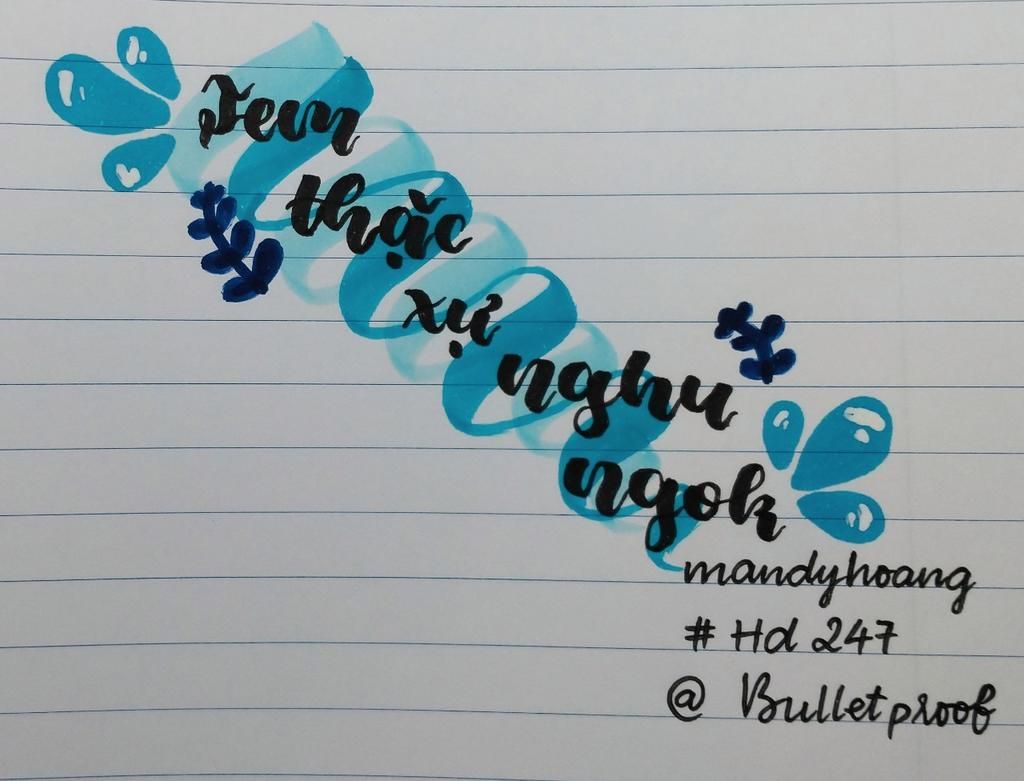 Tem
thặc
xự
nghu
ngok
mandyhoang
# Hd 247
@ Bulletproof